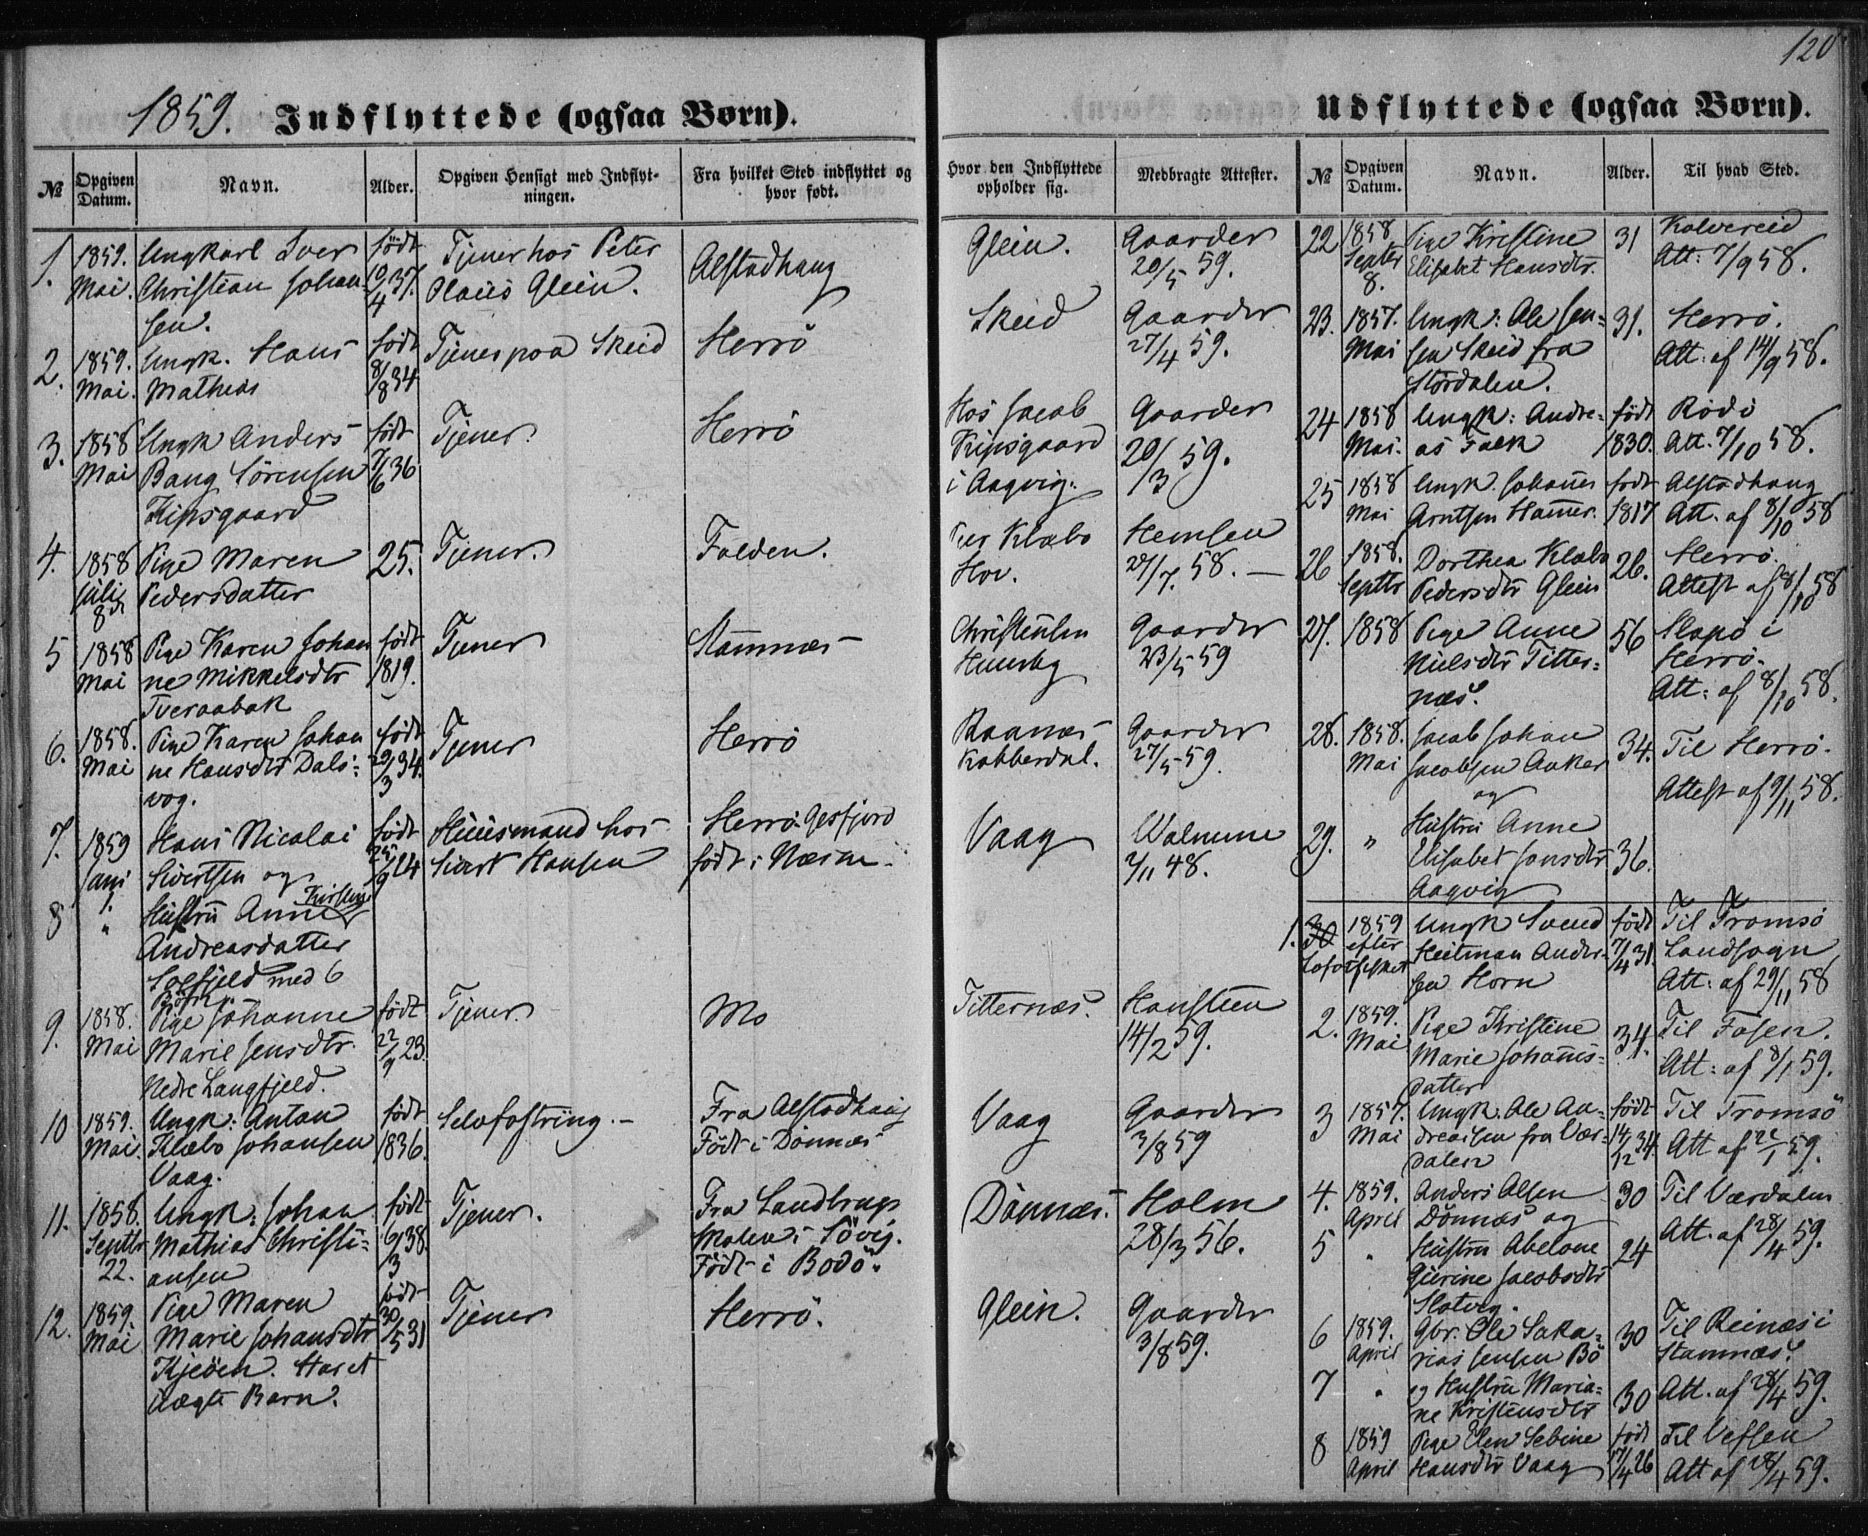 120
1859. Indflyttede (ogsaa Børn).
№
Opgiven Datum.
Navn.
Alder.
Opgiven Hensigt med Indflyt-
ningen.
Fra hvilket Sted indflyttet og
hvor født.
1. 1859. Ungkarl Iver født Tjener hos Peter Alstadhaug
Mai. Christian Johan- 10/4 37. Olaus Glein.
sen.
2. 1859. Ungk. Hans født Tjener paa Skeid Herrö
Mai. Mathias 8/8 34
3. 1858 Ungk Anders født Tjener. Herrö
Mai Bang Sörensen 7/6 36
Kipsgaard
4. 1858 Pige Maren 25. Tjener. Folden.
Juli Pedersdatter
8de
5 1858 Pige Karen Johan født Tjener Stamnæs
Mai ne Mikkelsdtr 1819.
Tveraabak
6. 1858. Pige Karen Johan født Tjener Herrö
Mai ne Hansdtr Dals- 29/3 34.
vog.
7. 1859 Hans Nicolai født Huusmand hos Herrö Gesfjord
Sivertsen og 25/9 24 Sivert Hansen født i Næsne.
8 " Hustru Anne Kirstine
Andreasdatter
Solfjeld med 6
Börn
9. 1858. Pige Johanne født Tjener. Mo
Mai Marie Jensdtr. 22/9 23.
Nedre Langfjeld.
10 1859. Ungk: Anton født Selvfostring. Fra Alstadhaug
Mai. Klæbo Johansen 1836. Født i Dönnæs
Vaag.
11. 1858. Ungk: Johan født Tjener. Fra Landbrugs
Septbr Mathias Christi- 6/3 38. skolen i Sövig.
22. ansen Födt i Bodö.
12. 1859. Pige Maren født Tjener Herrö.
Mai Marie Johansdtr 30/5 31
Kjeöen. Har et
uægte Barn.
Udflyttede (ogsaa Børn).
Hvor den Indflyttede
opholder sig.
Medbragte Attester.
№
Opgiven Datum.
Navn.
Alder.
Til hvad Sted.
Glein. Gaarder
20/5 59.
Skeid Gaarder
27/4 59.
Hos Jacob Gaarder
Kipsgaard 20/3 59.
i Aagvig.
Per Klæbo Hemsen
Hov. 27/7. 58.
Christen Gaarder
23/5 59
Raanæs Gaarder
Kobberdal. 27/5 59.
Vaag Walnume
2/11 48.
Titternæs. Hansteen
14/2 59.
Vaag Gaarder
3/8 59
Dönnæs. Holm
28/3 56.
Glein. Gaarder
3/8 59.
22 1858 Pige Kristine 31 Kolvereid
Septbr Elisabet Hansdtr. Att: 7/9 58.
8.
23. 1857. Ungk: Ole Jen- 31. Herrö.
Mai sen Skeid fra Att: af 14/9 58.
Stördalen.
24 1858 Ungk: Andre- født Rödö
Mai. as Falk 1830. Att. 7/10 58.
25 1858 Ungk. Johannes født Alstadhaug
Mai Arntsen Hammer. 1817 Att. af 8/10 58
26 1858. Dorthea Klæbo 26. Herrö.
Septbr Pedersdtr Glein Attest af 8/10 58
27. 1858 Pige Anne 56 Slapö i
Nielsdtr Titter- Herrö.
næs. Att: af 8/10 58.
28. 1858. Jacob Johan 34. Til Herrö.
Mai Jacobsen Aaker Attest af 9/11 58.
og
29. " Hustru Anne
Elisabet Jonsdtr 36.
Aagvig
1. 30 1859 Ungk Svend født Til Tromsö
efter Heitman Ander- 7/4 31. Landsogn
Lofotfisket sen Horn Att: af 29/11 58
2. 1859. Pige Kristine 34. Til Fosen.
Mai Marie Johannes- Att: af 8/1 59.
datter
3 1857. Ungk: Ole An- født Til Tromsö
Mai dreasen fra Vær- 14/12 34. Att af 22/1 59.
dalen
4. 1859. Anders Olsen 30 Til Værdalen
April Dönnæs og Att. af 28/4 59.
5 " Hustru Abelone 24
Gjerine Jacobsdtr
Slotvig.
6 1859. Gbr. Ole Saka- 30 Til Reinæs i
April rias Jensen Bö Stamnæs.
7 " og Hustru Maria- 30 Att. af 28/4 59.
ne Kristensdtr
8 1859 Pige Elen Sebine født Til Vefsen
April Hansdtr Vaag 17/4 26 Att af 28/4 59.